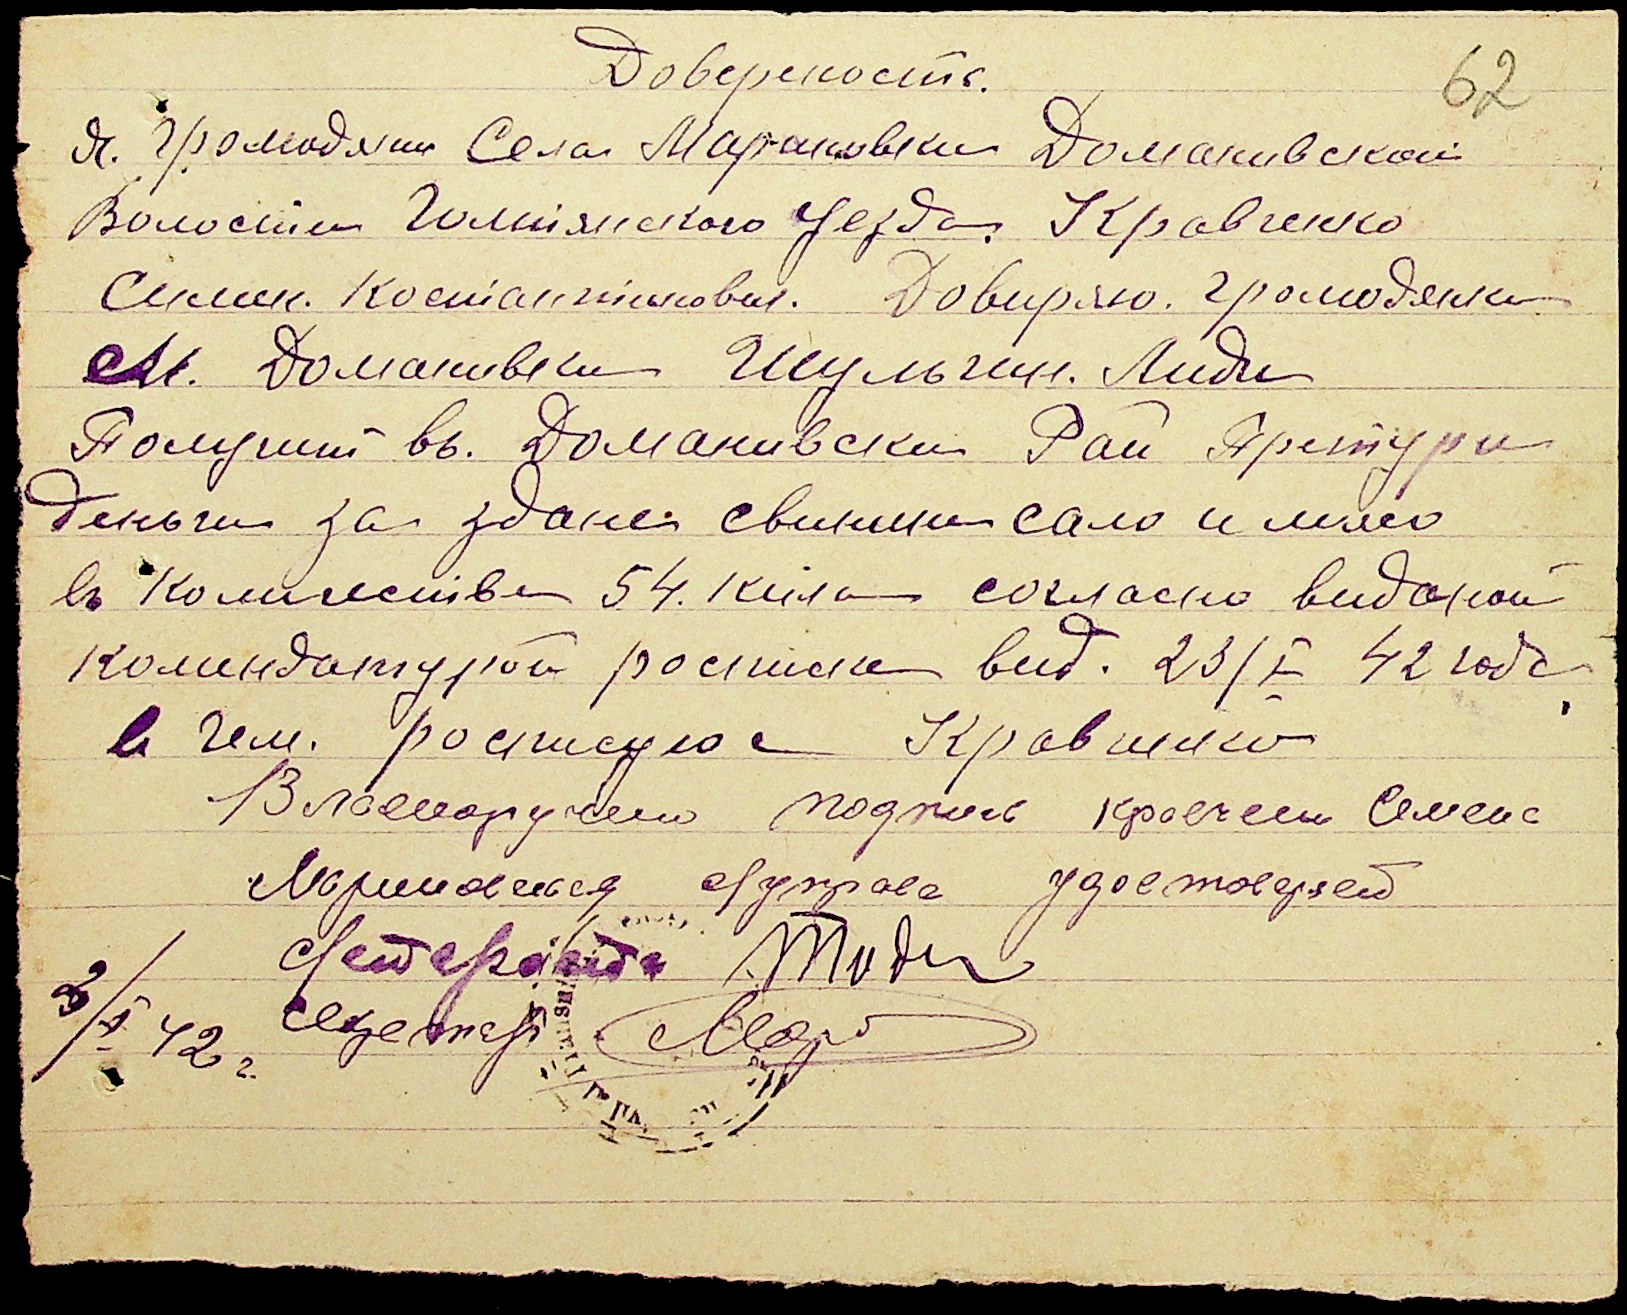 Довереность.
62
Я. громодянин Села Мариновки Доманивской
Волости Голтянского уезда. Кравченко
Симен. Костантинович. Довиряю. громодянки
М. Доманивки Шульгин. Лиди
Получит въ. Доманивски Рай Претури
деньги за здане свинини сало и мясо
въ Количестви 54. кила согласно виданой
комендатурой росписки вид. 23/I 42 года
в чем. росписуюс Кравченко
Власноручено подпись кравченко Семена
Мариновская управа удостоверяет
Секретарь
3/V 42 г.